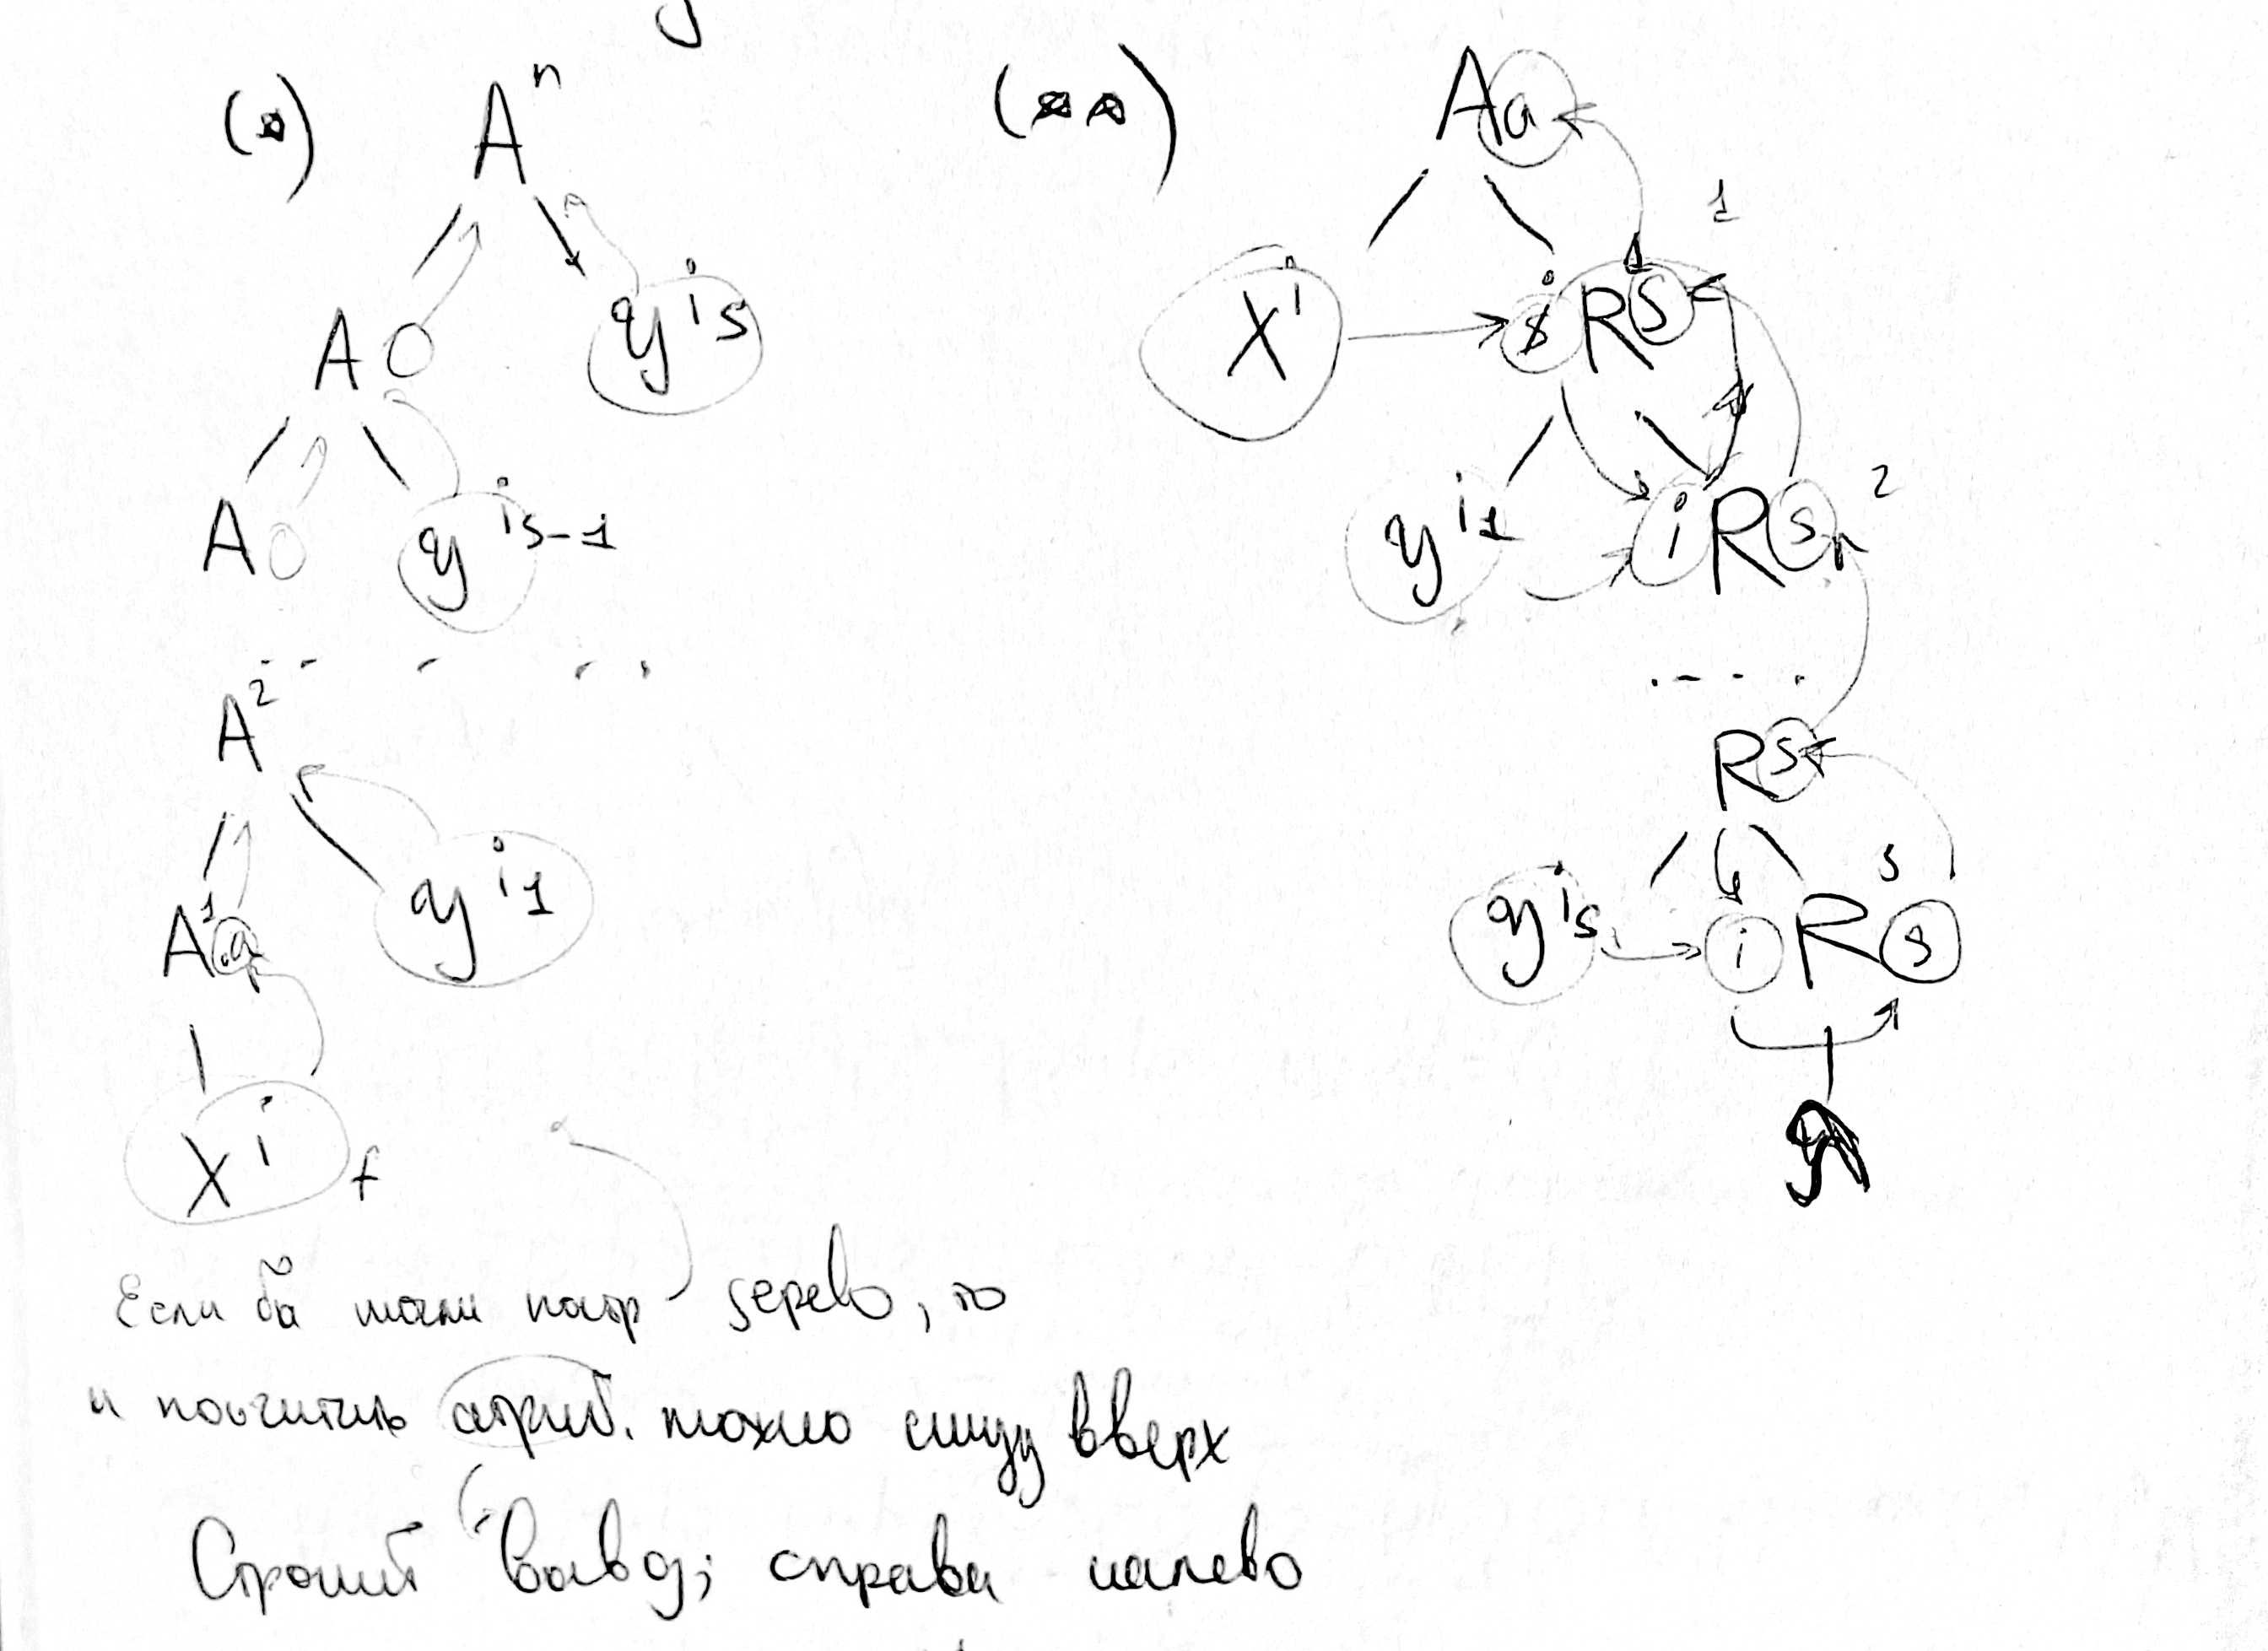 (*) Aⁿ
A yⁱs
A yⁱs-1
A²
A¹ a yⁱ1
Xⁱ f
(**) A a
Xⁱ i R s 1
yⁱ1 i R s 2
R s
yⁱs i R s s
Если бы или дерево, то
и посчитать атриб. можно снизу вверх
Строит вывод; справа налево